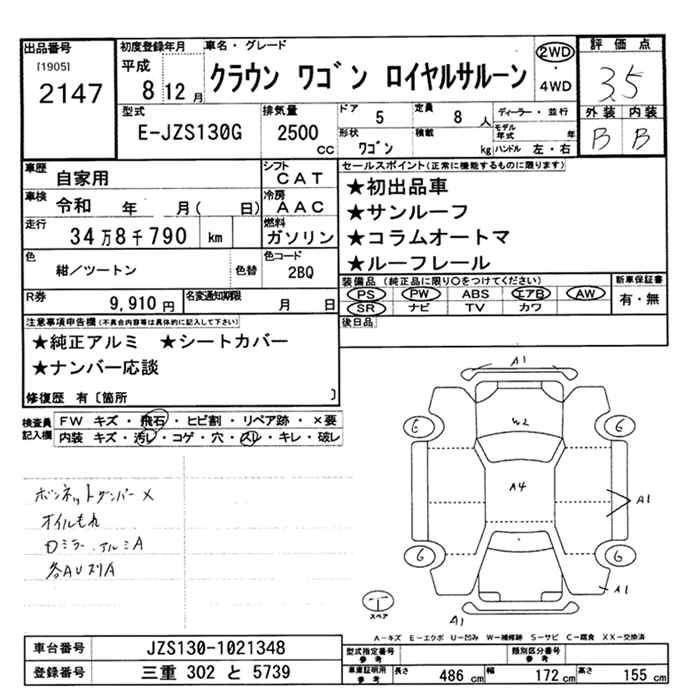 出品番号
[1905]
2147
初度登録年月
平成
8 12 月
車名・グレード
クラウン ワゴン ロイヤルサルーン
2WD
・
4WD
評価点
3.5
外装 内装
B B
型式
E-JZS130G
排気量
2500 cc
ドア 5
定員 8 人
形状 ワゴン
積載 kg
ディーラー・並行
モデル年式 年
ハンドル 左・右
車歴 自家用
シフト CAT
車検 令和 年 月( 日)
冷房 AAC
走行 34万8千790 km
燃料 ガソリン
色 紺/ツートン 色替
色コード 2BQ
R券 9,910 円
名変通知期限 月 日
セールスポイント(正常に機能するものに限ります)
★初出品車
★サンルーフ
★コラムオートマ
★ルーフレール
装備品(純正品に限り○をつけてください)
PS PW ABS エアB AW
SR ナビ TV カワ
新車保証書
有・無
後日品
注意事項申告欄(不具合内容等は具体的に記入して下さい)
★純正アルミ ★シートカバー
★ナンバー応談
修復歴 有〔箇所 〕
検査員記入欄
FW キズ・飛石・ヒビ割・リペア跡・×要
内装 キズ・汚レ・コゲ・穴・スレ・キレ・破レ
ボンネットダンパー×
オイルもれ
ロミラー、アルミA
各AUスリA
A1
W2
G
G
A4
A1
G
G
A1
A1
T
スペア
A-キズ E-エクボ U-凹み W-補修跡 S-サビ C-腐食 XX-交換済
車台番号 JZS130-1021348
登録番号 三重 302 と 5739
型式指定番号 参考
類別区分番号 参考
車庫証明用 参考
長さ 486 cm
幅 172 cm
高さ 155 cm